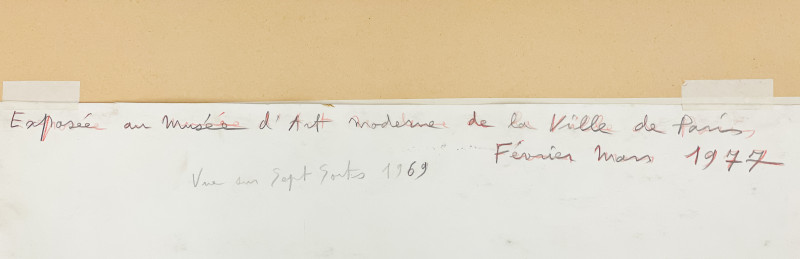 Exposée au Musée d'Art moderne de la Ville de Paris
Février Mars 1977
Vue sur Sept Sorts 1969